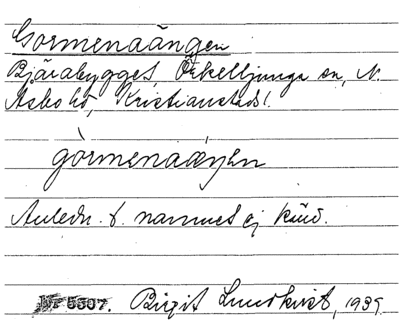 Gormenaängen
Bjärabygget, Örkelljunga sn, N.
Åsbo hd, Kristianstads l.
gòrmenaæŋen
Anledn. t. namnet ej känd.
Nr 5507. Birgit Lundkvist, 1935